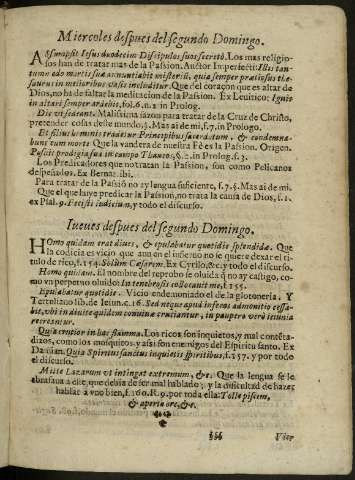 Miercoles despues del segundo Domingo.
Assumpsit Iesus duodecim Discipulos suos secretò. Los mas religio-
sos han de tratar mas de la Passion. Auctor Imperfecti: Illis tan-
tum
mortis suæ annuntiabit misterium, quia semper pretiosus the-
saurus in melioribus clauditur. Que del coraçon que es altar de
Dios, no ha de faltar la meditacion de la Passion. Ex Leuitico: Ignis
in altari semper ardebit, fol.6.n.1 in Prolog.
Dic vt sedeant. Malissima sazon para tratar de la Cruz de Christo,
pretender cosas deste mundo, §. Mas ai de mi, f.7. in Prologo.
Et filius hominis tradetur Principibus sacerdotum, & condemna-
bunt eum morte Que la vandera de nuestra Fè es la Passion. Origen.
Posuit prodigia sua in campo Thaneos, §.2. in Prolog. f.3.
Los Predicadores que no tratan la Passion, son como Pelicanos
despeñados. Ex Bernar. ibi.
Para tratar de la Passiõ no ay lengua suficiente, f.7. §. Mas ai de mi.
Que el que huye predicar la Passion, no trata la causa de Dios, §.1.
ex Psal.9. Fecisti iudicium, y todo el discurso.
Iueues despues del segundo Domingo.
Homo quidam erat diues, & epulabatur quotidie splendide. Que
la codicia es vicio que aun en el infierno no le quiere dexar el ti-
tulo de rico, f.154. Solum Cæsarem. Ex Cyrilo, &c. y todo el discurso.
Homo quidam. El nombre del reprobo se oluida q̃ no ay castigo, co-
mo vn perpetuo oluido: In tenebris collocauit me, f.155.
Epulabatur quotidie. Vicio endemoniado el de la glotoneria. Y
Tertuliano lib. de Ieiun.c.16. Sed neque apud inferos admonitio cessa-
bit, vbi in diuite quidem conuiuæ cruciantur, in paupere verò ieiunia
recreantur.
Quia crucior in hac flamma. Los ricos son inquietos, y mal contẽta-
dizos, como los mosquitos, y assi son enemigos del Espiritu santo. Ex
Damian. Quia Spiritus sanctus inquietis spiritibus, f.157. y por todo
el discurso.
Mitte Lazarum vt intingat extremum, &c. Que la lengua se le
abrasaua a este, que debia de ser mal hablado; y la dificultad de hazer
hablar a vno bien, f.160. R.9. por toda ella: Tolle piscem,
& aperto ore, &c.
§§6